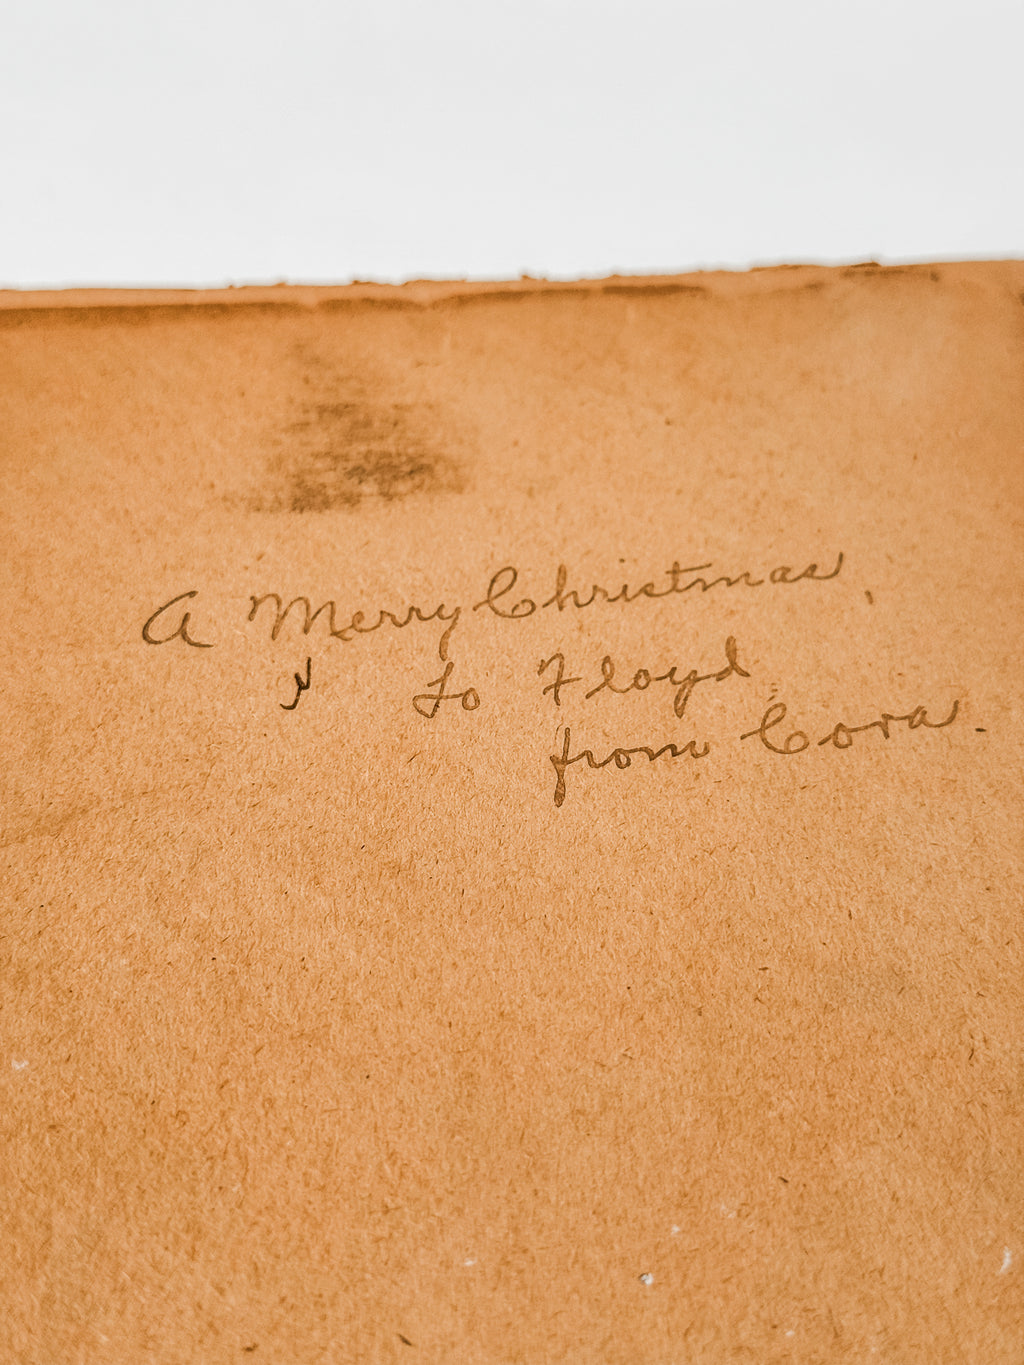 A Merry Christmas,
to Floyd
from Cora.